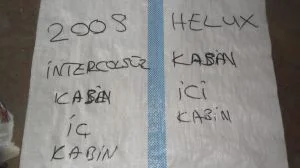 2008
İNTERCOLSÜZ
KABİN
İÇ
KABİN
HELUX
KABİN
İCİ
KABİN